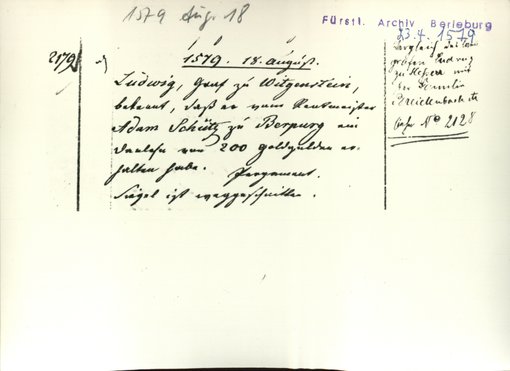 1579 Aug. 18
Fürstl. Archiv Berleburg
23.4.1579
2179
1579. 18. august.
Ludwig, Graf zu Witgenstein,
bekennt, daß er vom Rentmeister
Adam Schütz zu Berpurg ein
Darlehn von 200 Goldgulden er-
halten habe. Pergament.
Siegel ist weggeschnitten.
Vergleich des
grafen Ludwig
zu mit
der Familie
Breidenbach
N° 2128